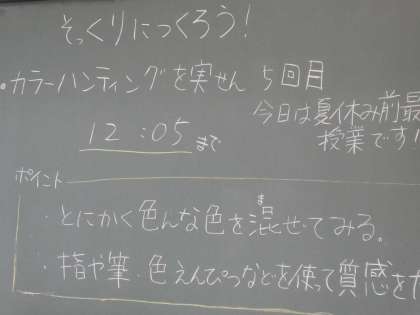 そっくりにつくろう!
・カラーハンティングを実せん 5回目
今日は夏休み前最
授業です!
12:05まで
ポイント
・とにかく色んな色を混ぜてみる。
ま
・指や筆、色えんぴつなどを使って質感を